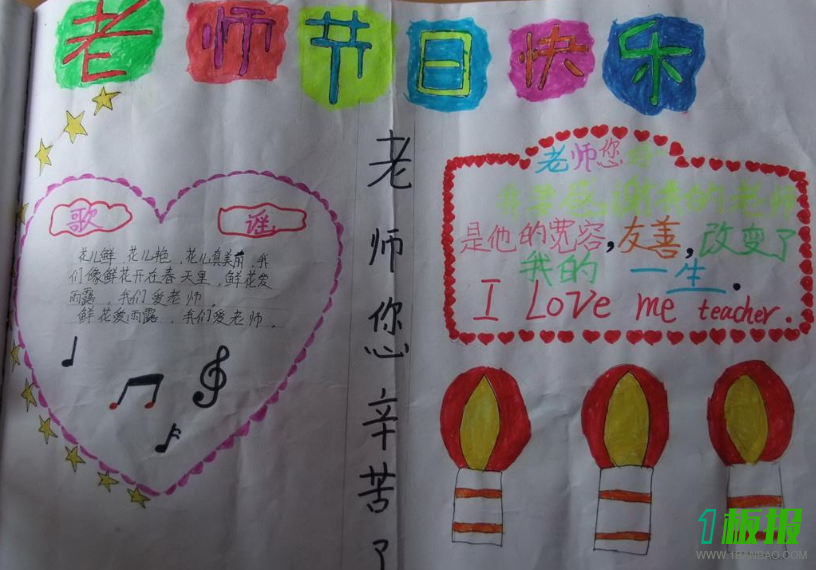 老师节日快乐
歌 谣
花儿鲜 花儿艳，花儿真美丽，我
们像鲜花开在春天里，鲜花爱
雨露，我们爱老师。
鲜花爱雨露，我们爱老师。
老师您辛苦了
老师您
我的老师
是他的宽容，友善，改变了
我的一生.
I Love me teacher.
1板报
WWW.1BANBAO.COM